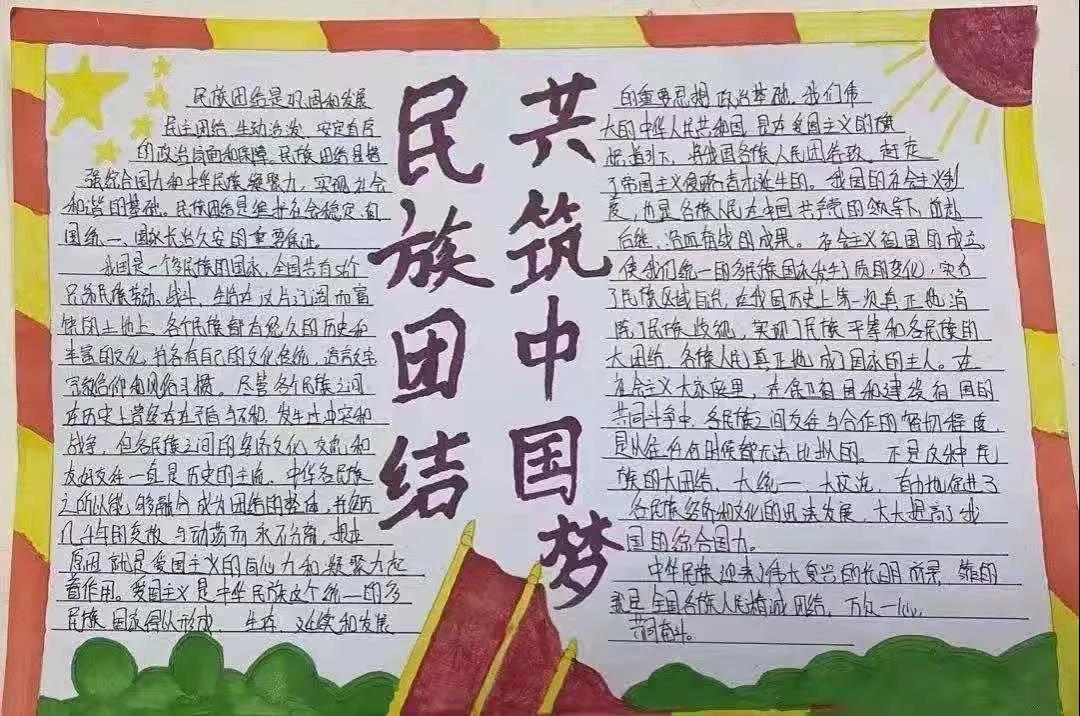 民族团结
共筑中国梦
民族团结是巩固和发展
民主团结、生动活泼、安定有序
的政治局面和保障。民族团结是增
强综合国力和中华民族凝聚力，实现社会
和谐的基础。民族团结是维护社会稳定、
国统一、国家长治久安的重要保证。
我国是一个多民族的国家，全国共有56个
民族劳动、战斗、生活在这片辽阔而富
饶的土地上，各个民族都有悠久的历史和
丰富的文化，并各有自己的文化传统，语言文字
宗教信仰和风俗习惯。尽管各个民族之间
在历史上曾经存在矛盾与不和，发生过冲突和
战争，但各民族之间的经济文化交流和
友好交存一直是历史的主流。中华各民族
之所以能够融合成为团结的整体，并经历
几千年的变故与动荡而永不分离，
原因就是爱国主义的向心力和凝聚力起
着作用。爱国主义是中华民族这个统一的多
民族国家得以形成、生存、延续和发展
的重要思想政治基础。我们伟
大的中华人民共和国，是在爱国主义的旗
帜指引下，将我国各族人民团结致，赶走
了帝国主义侵略者才诞生的。我国的社会主义制
度，也是各族人民在中国共产党的领导下，前赴
后继、浴血奋战的成果。社会主义祖国的成立，
使我们统一的多民族国家发生了质的变化，实行
了民族区域自治，在我国历史上第一次真正地消
除了民族歧视，实现了民族平等和各民族的
大团结，各族人民真正地成了国家的主人。在
社会主义大家庭里，在保卫祖国和建设祖国的
共同斗争中，各民族之间交存与合作的密切程度，
是从任何时候都无法比拟的。正是这种民
族的大团结、大统一、大交流，有力地促进了
各民族经济和文化的迅速发展，大大提高了我
国的综合国力。
中华民族迎来了伟大复兴的光明前景，靠的
就是全国各族人民精诚团结，万众一心，
共同奋斗。